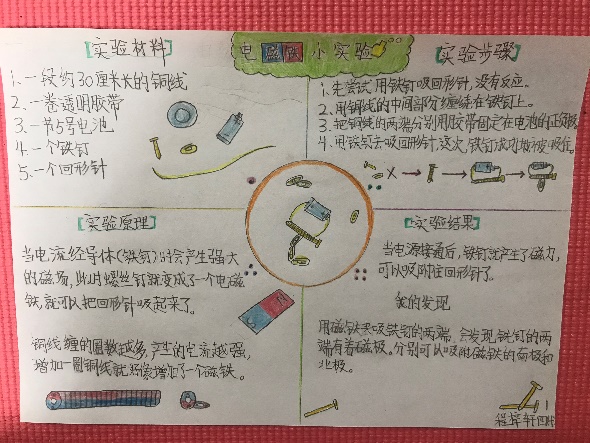 电磁铁小实验
[实验材料]
1.一段约30厘米长的铜线
2.一卷透明胶带
3.一节5号电池
4.一个铁钉
5.一个回形针
[实验步骤]
1.先尝试用铁钉吸回形针,没有反应。
2.用铜线的中间部匀缠绕在铁钉上。
3.把铜线的两端分别用胶带固定在电池的正负极
4.用铁钉去吸回形针,这次,铁钉
[实验原理]
当电流经导体(铁钉)时会产生强大
的磁场,此时螺丝钉就变成了一个电磁
铁,就可以把回形针吸起来了。
铜线缠的圈数越多,产生的电流越强,
增加一圈铜线就好像增加了一个磁铁。
[实验结果]
当电源接通后,铁钉就产生了磁力,
可以吸附住回形针了。
我的发现
用磁铁去吸铁钉的两端,会发现铁钉的两
端有着磁极。分别可以吸附磁铁的南极和
北极。